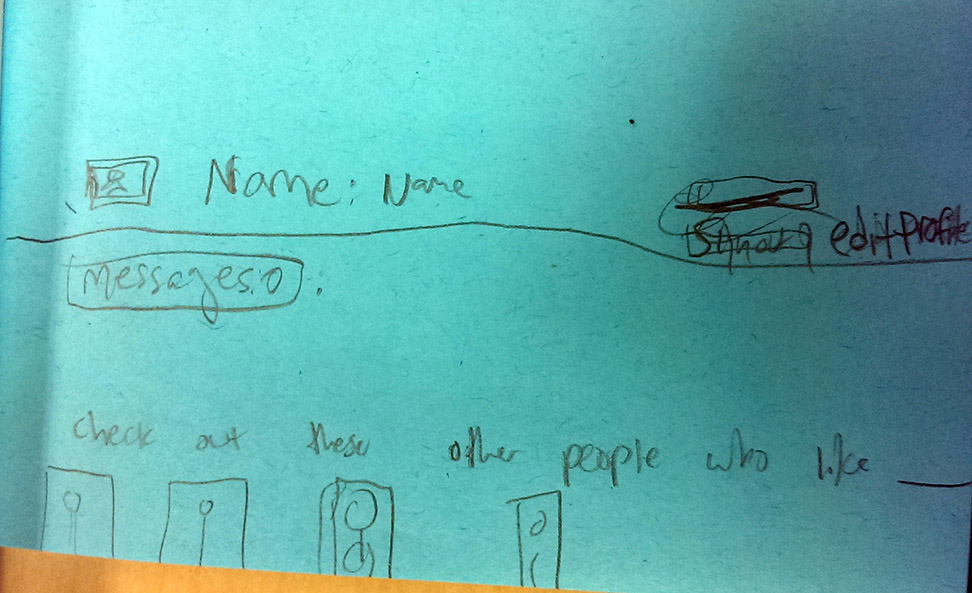 Name: Name
edit profile
messages: 0
check out these other people who like